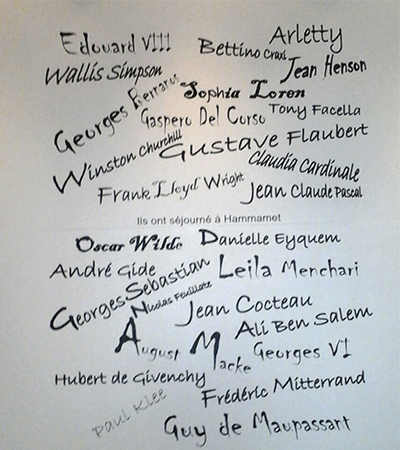 Edouard VIII
Arletty
Bettino Craxi
Wallis Simpson
Jean Henson
Georges Bernanos
Sophia Loren
Tony Facella
Gaspero Del Corso
Gustave Flaubert
Winston Churchill
Claudia Cardinale
Frank Lloyd Wright
Jean Claude Pascal
Ils ont séjourné à Hammamet
Oscar Wilde
Danielle Eyquem
André Gide
Georges Sebastian
Leila Menchari
Nicolas Feuillatte
Jean Cocteau
August Macke
Ali Ben Salem
Georges VI
Hubert de Givenchy
Frédéric Mitterrand
Paul Klee
Guy de Maupassart